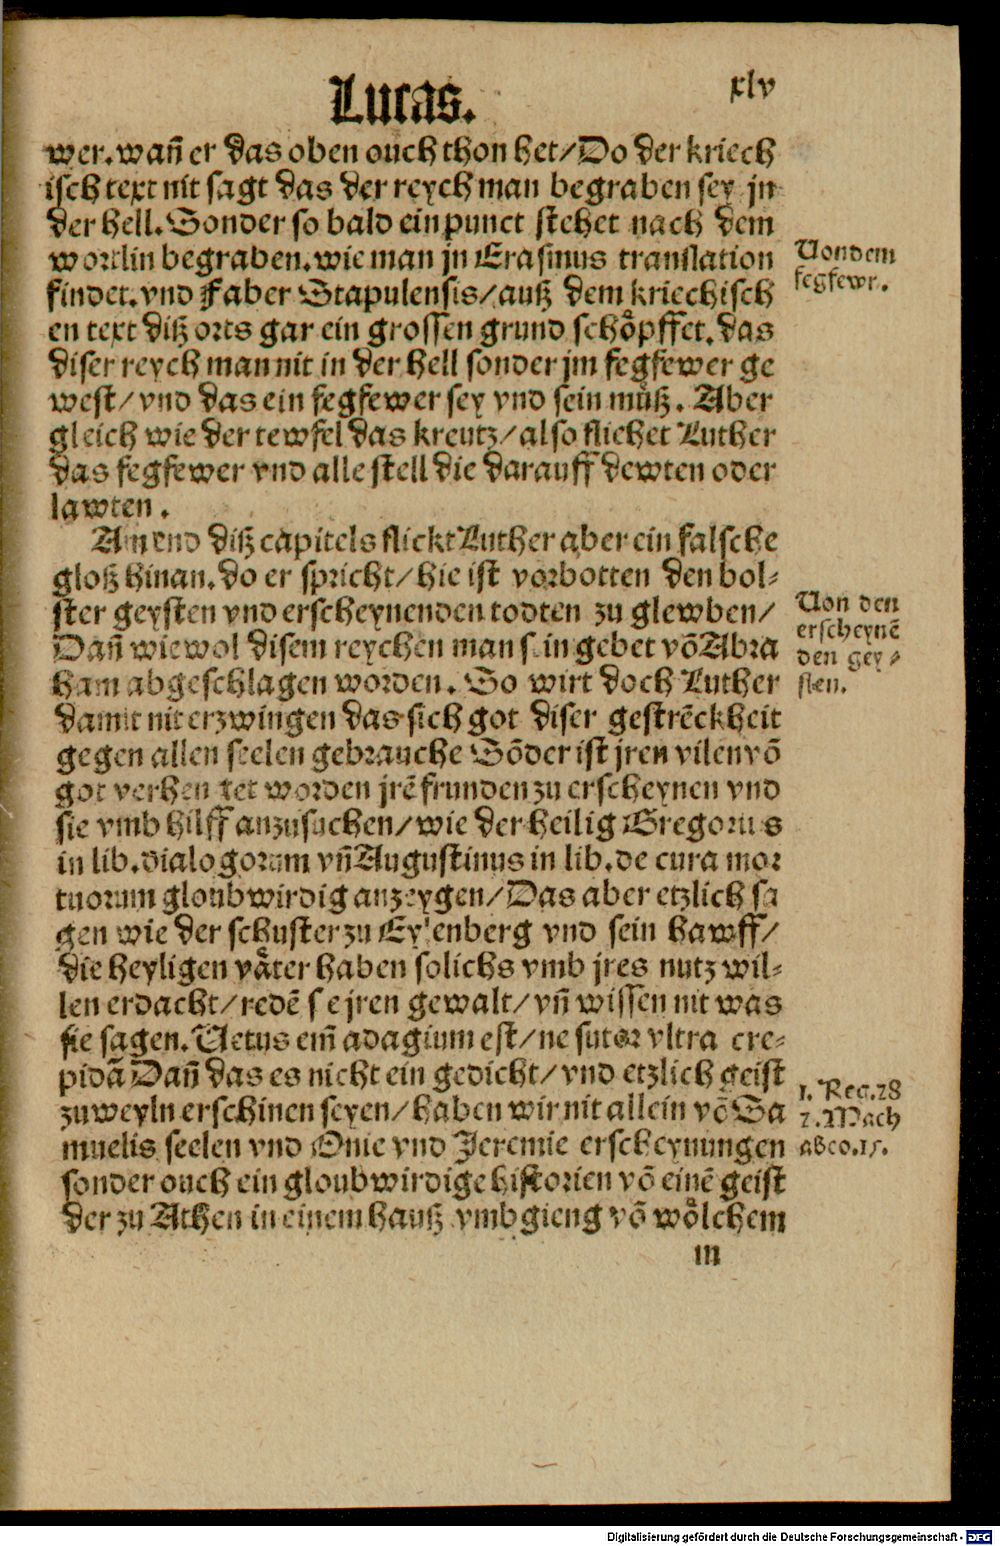 Lucas.
xlv
wer. wañ er das oben ouch thon het/ Do der kriech
isch text nit sagt das der reych man begraben sey jn
der hell. Sonder so bald ein punct stehet nach dem
wortlin begraben. wie man jn Erasmus translation
findet. vnd Faber Stapulensis/ auß dem kriechisch
en text diß orts gar ein grossen grund schoͤpffet. das
diser reych man nit in der hell sonder jm fegfewer ge
west/ vnd das ein fegfewer sey vnd sein muͤß. Aber
gleich wie der tewfel das kreutz/ also fliehet Luther
das fegfewer vnd alle stell die darauff dewten oder
lawten.
Von dem
fegfewr.
Am end diß capitels flickt Luther aber ein falsche
gloß hinan. do er spricht/ hie ist vorbotten den bol⸗
ster geysten vnd erscheynenden todten zu glewben/
Dañ wiewol disem reychen man sein gebet võ Abra
ham abgeschlagen worden. So wirt doch Luther
damit nit erzwingen das sich got diser gestrẽckheit
gegen allen seelen gebrauche Sõder ist jren vilen võ
got verhenget worden jrẽ frunden zu erscheynen vnd
sie vmb hilff anzusuchen/ wie der heilig Gregorius
in lib. dialogorum vñ Augustinus in lib. de cura mor
tuorum gloubwirdig anzeygen/ Das aber etzlich sa
gen wie der schuster zu Eylenberg vnd sein hawff/
die heyligen vaͤter haben solichs vmb jres nutz wil⸗
len erdacht/ redẽ se jren gewalt/ vñ wissen nit was
sie sagen. Vetus em̃ adagium est/ ne sutor vltra cre⸗
pidã Dañ das es nicht ein gedicht/ vnd etzlich geist
zuweyln erschinen seyen/ haben wir nit allein võ Sa
muelis seelen vnd Onie vnd Jeremie erscheynungen
sonder ouch ein gloubwirdige historien võ einẽ geist
der zu Athen in einem hauß vmbgieng võ woͤlchem
Von den
erscheynẽ
den gey⸗
sten.
1. Reg. 28
2. Mach
abeo. 15.
m
Digitalisierung gefördert durch die Deutsche Forschungsgemeinschaft - DFG